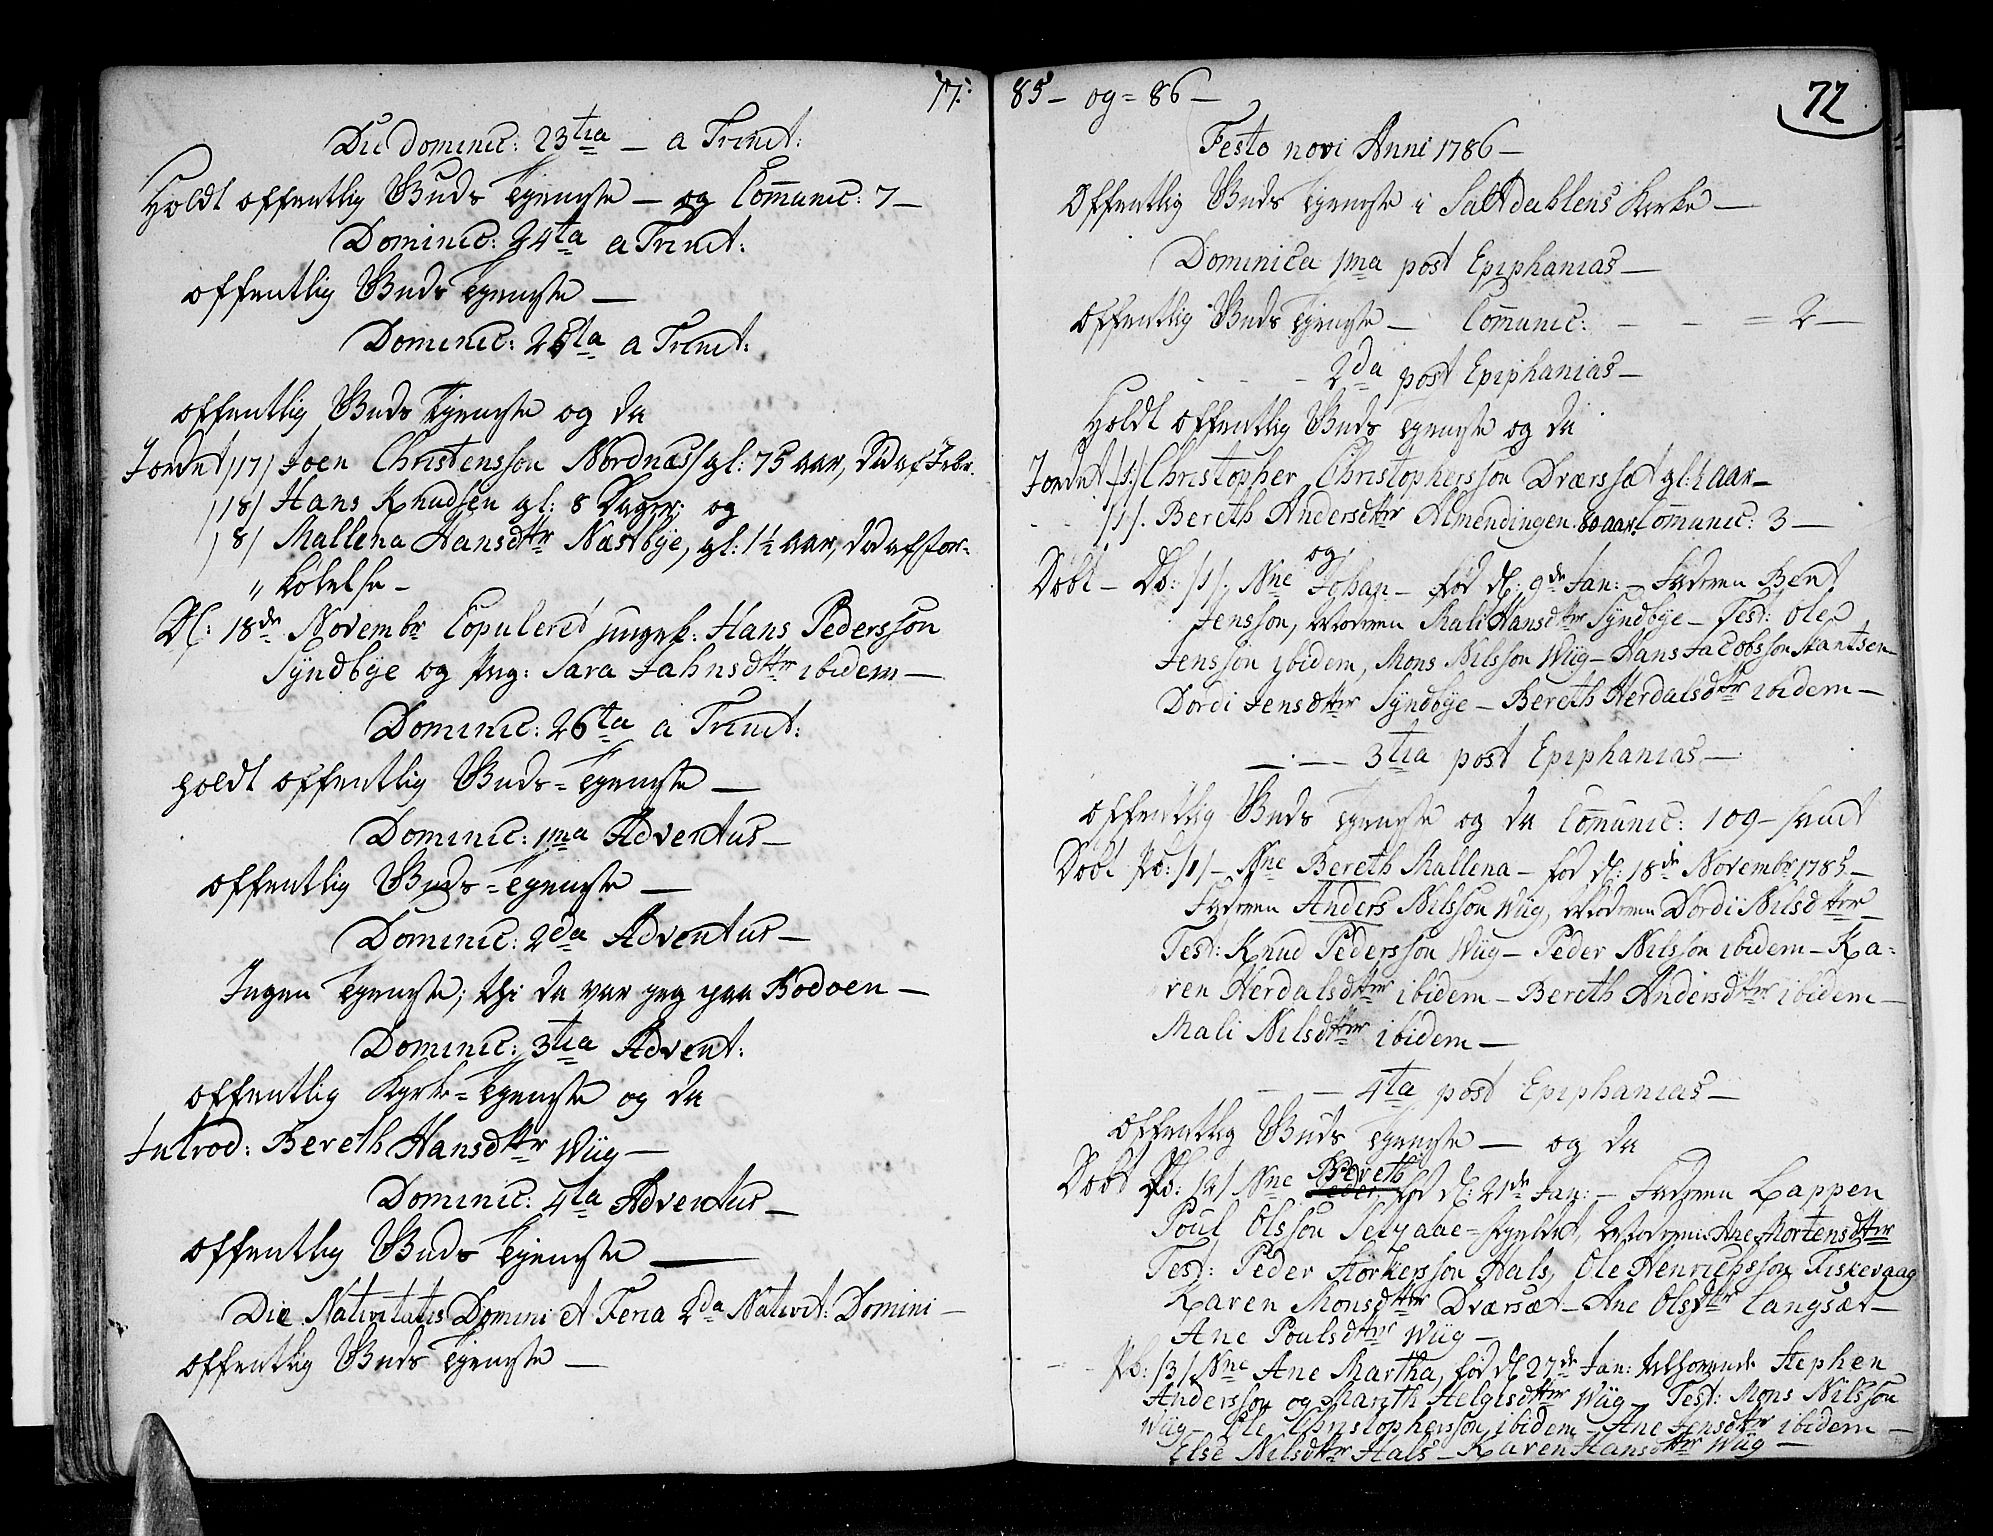 17:
Die Dominic: 23tia — a Trinit:
Holdt offentlig Guds Tjeneste — og Comunic: 7 —
Dominic: 24ta a Trinit:
offentlig Guds Tjeneste —
Dominic: 25ta a Trinit:
offentlig Guds Tjeneste og da
Jordet /17/ Joen Christensson Nordnæs gl: 75 aar, død af
/18/ Hans Knudsen gl: 8 Dager; og
/8/ Mallena Hansdttr Næstbye, gl: 1½ aar, død af for-
„ kølelse —
D: 18de Novembr Copuleret ungk: Hans Pedersson
Syndbye og Pig: Sara Jahnsdttr ibidem —
Dominic: 26ta a Trinit:
holdt offentlig Guds=Tjeneste —
Dominic: 1ma Adventus —
offentlig Guds=Tjeneste —
Dominic: 2da Adventus —
Ingen Tjeneste; thi da var jeg paa Bodøen —
Dominic: 3tia Advent:
offentlig Kyrke=Tjeneste og da
Introd: Bereth Hansdttr Wiig —
Dominic: 4ta Adventus —
offentlig Guds Tjeneste —
Die Nativitatis Domini et Feria 2da Nativit: Domini —
offentlig Guds Tjeneste —
85 — og = 86 —
72
Festo novi Anni 1786 —
Offentlig Guds Tjeneste i Saltdahlens Kirke —
Dominica 1ma post Epiphanias —
offentlig Guds Tjeneste — Comunic: — — = 2 —
— — — 2da post Epiphanias —
Holdt offentlig Guds Tjeneste og da
Jordet /1/ Christopher Christophersson Dværsæt gl: ½ aar —
— — /1/. Bereth Andersdttr Almendingen 80 aar. Comunic: 3 —
Døbt — Db: /1/, Nne og Johan — fød d: 9de Jan: — Faderen Bent
Jensson, Moderen Mali Hansdttr Syndbye — Test: Ole
Jensson ibidem, Mons Nilsson Wiig — Hans Jacobsson
Dordi Jensdttr Syndbye — Bereth Herdalsdttr ibidem —
— · — 3tia post Epiphanias —
offentlig Guds Tjeneste og da Comunic: 109 — samt
Døbt Pb: /1/ — Nne Bereth Mallena — fød d: 18de Novembr 1785 —
Faderen Anders Nilsson Wiig, Moderen Dordi Nilsdttr —
Test: Knud Pedersson Wiig — Peder Nilsson ibidem — Ka-
ren Herdalsdttr ibidem — Bereth Andersdttr ibidem —
Mali Nilsdttr ibidem —
— — 4ta post Epiphanias —
offentlig Guds Tjeneste — og da
Døbt Pb: /2/ Nne Bereth fød d: 21de Jan: — Faderen Lappen
Poul Olsson Selyaae=fjeldet, Moderen Ane Mortensdttr
Test: Peder Størkersson Hals, Ole Henrichsson Fiskevaag
Karen Monsdttr Dværsæt — Ane Olsdttr Langsæt —
Ane Poulsdttr Wiig —
— — Pb: /3/ Nne Ane Martha, fød d: 27de Jan: Forældrene Stephen
Andersson og Marith Helgesdttr Wiig — Test: Mons Nilsson
Wiig — Ole Christophersson ibidem — Ane Jensdttr ibidem —
Else Nilsdttr Hals — Karen Hansdttr Wiig —